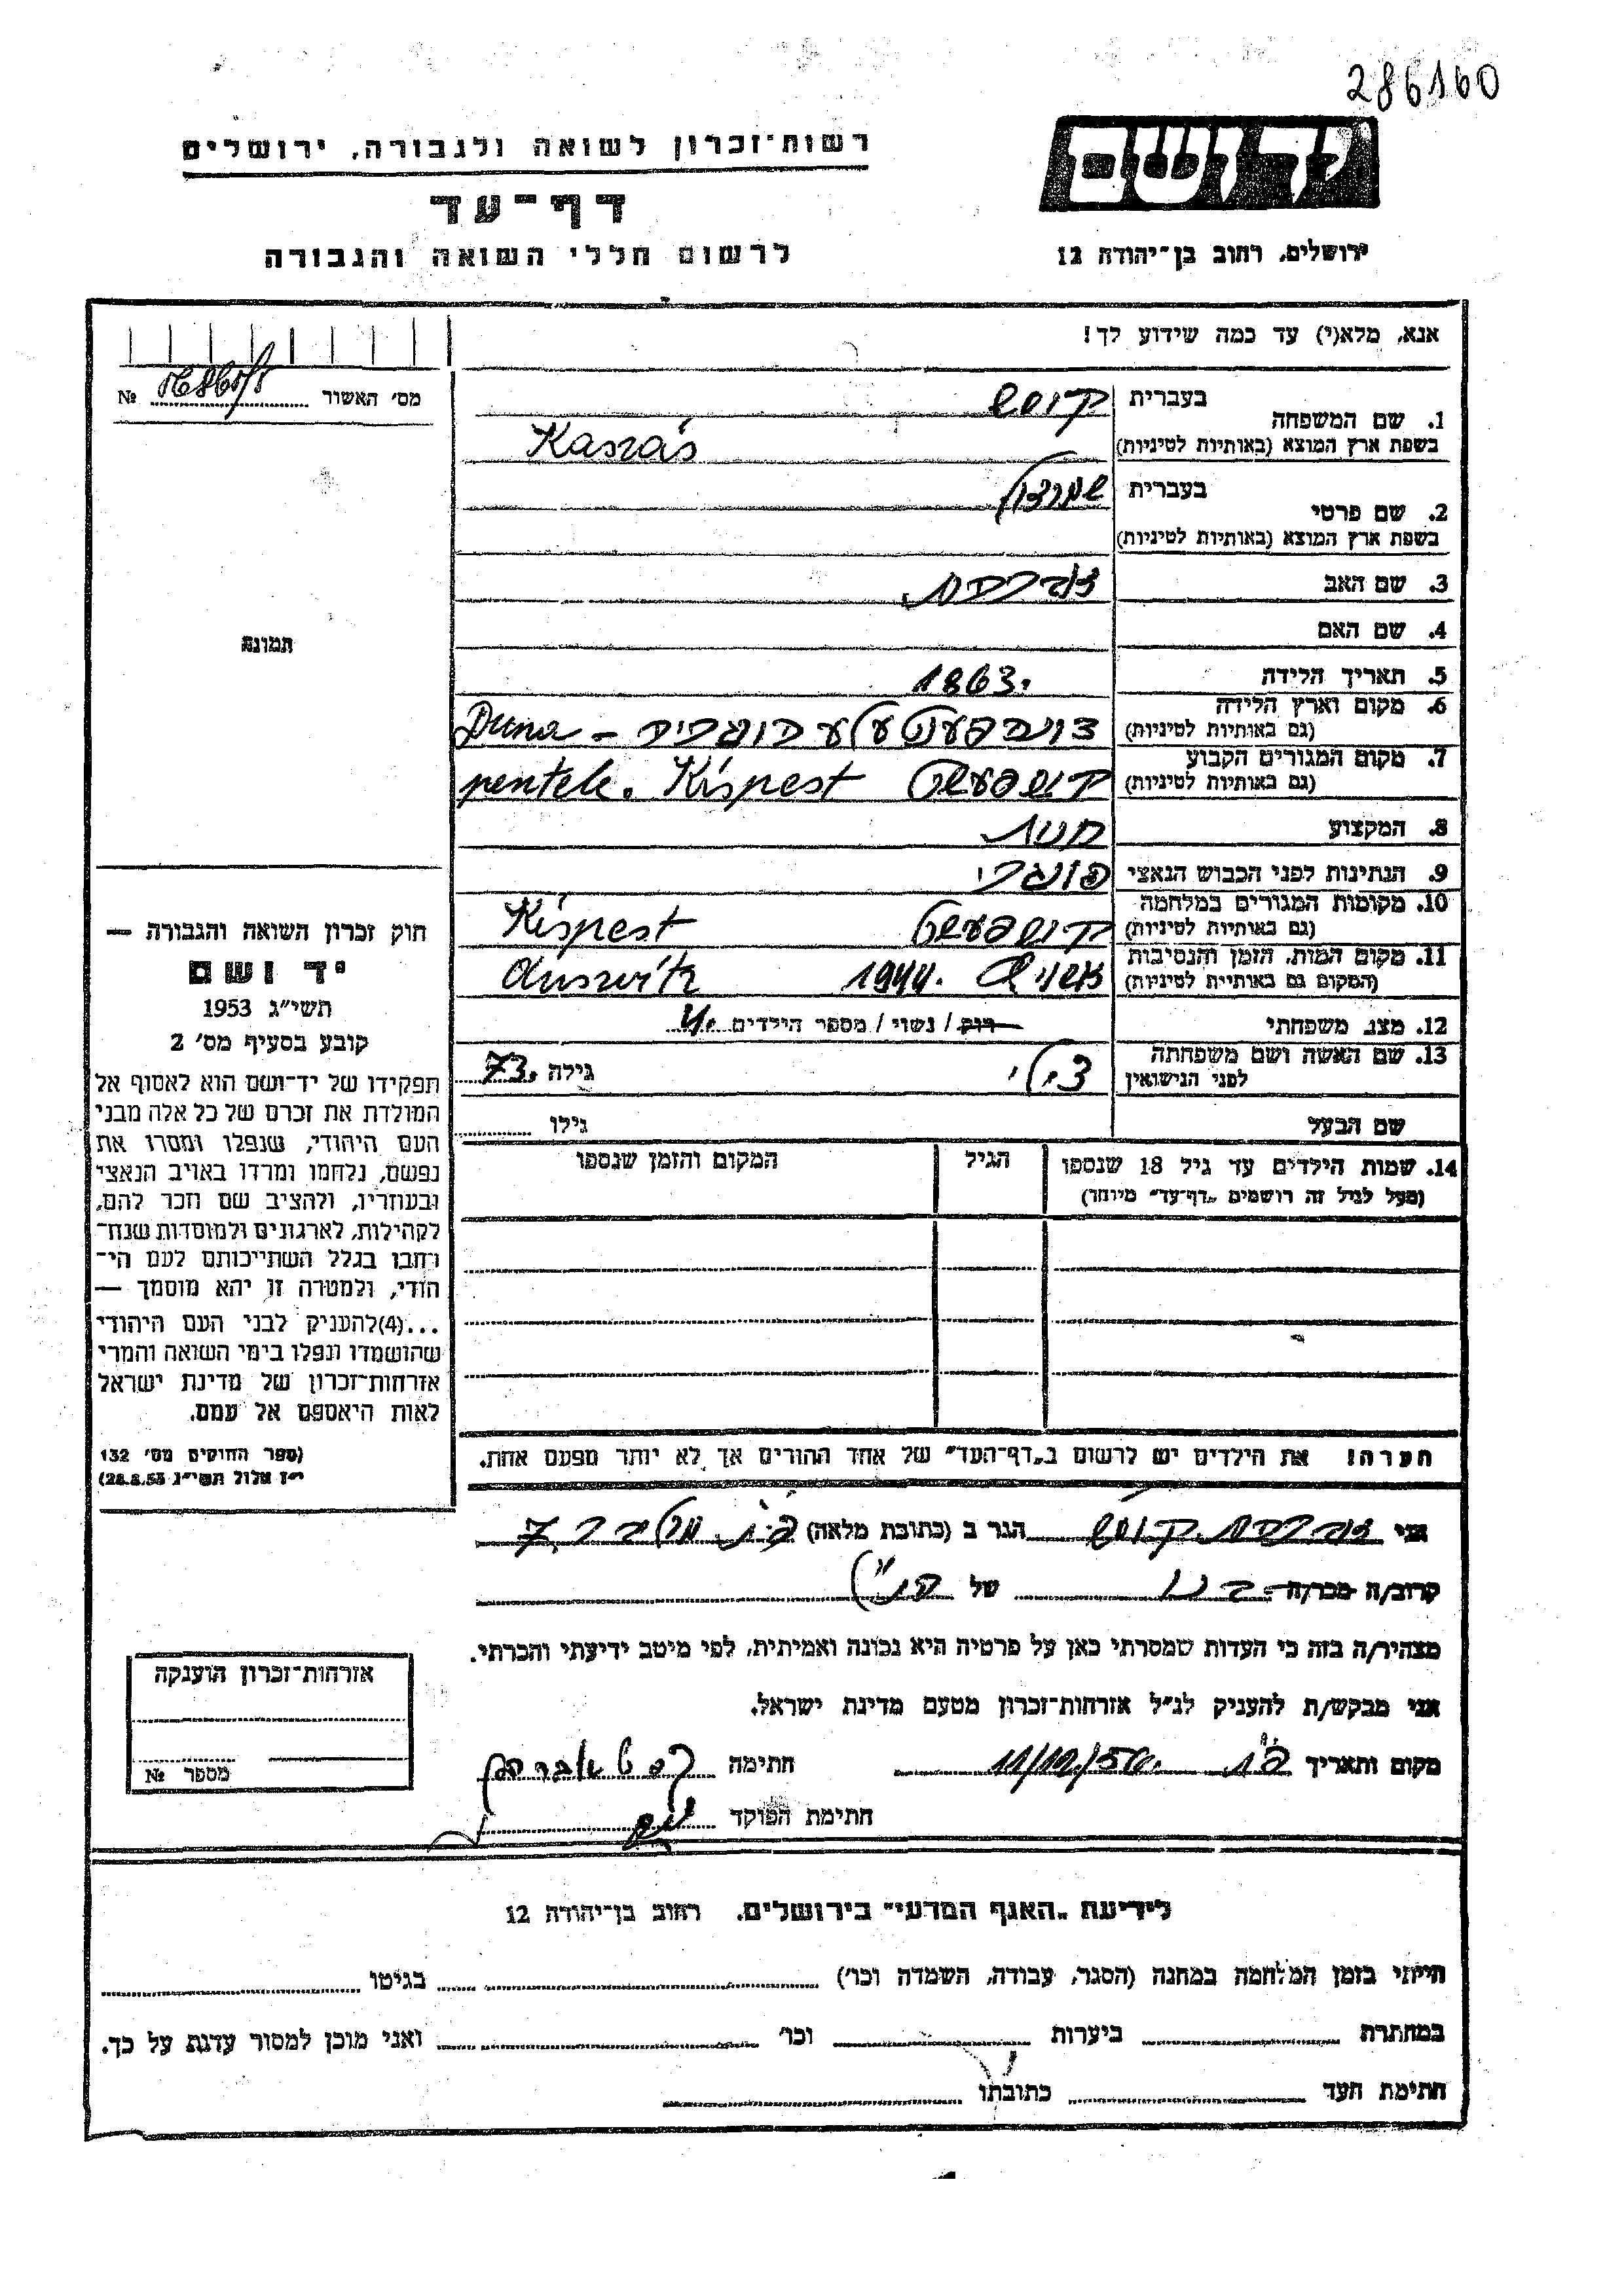 286160
רשות־זכרון לשואה ולגבורה, ירושלים
דף־עד
לרשום חללי השואה והגבורה
יד ושם
ירושלים, רחוב בן־יהודה 12
אנא, מלא(י) עד כמה שידוע לך!
מס' האשור № 
1. שם המשפחה
בעברית
בשפת ארץ המוצא (באותיות לטיניות) Kaszás
2. שם פרטי
בעברית
בשפת ארץ המוצא (באותיות לטיניות)
3. שם האב
4. שם האם
תמונה
5. תאריך הלידה 1863.
6. מקום וארץ הלידה
(גם באותיות לטיניות) דונה פענטעלע הונגריה – Duna
7. מקום המגורים הקבוע
(גם באותיות לטיניות) קישפעשט pentele. Kispest
8. המקצוע
9. הנתינות לפני הכבוש הנאצי הונגרי
10. מקומות המגורים במלחמה
(גם באותיות לטיניות) קישפעשט Kispest
11. מקום המות, הזמן והנסיבות
(המקום גם באותיות לטיניות) 1944. Auswitz
12. מצב משפחתי רוק / נשוי / מספר הילדים 4.
13. שם האשה ושם משפחתה
לפני הנישואין
גילה 73.
שם הבעל גילו
14. שמות הילדים עד גיל 18 שנספו
(מעל לגיל זה רושמים "דף־עד" מיוחד)
הגיל
המקום והזמן שנספו
הערה! את הילדים יש לרשום ב"דף־העד" של אחד ההורים אך לא יותר מפעם אחת.
חוק זכרון השואה והגבורה —
יד ושם
תשי"ג 1953
קובע בסעיף מס' 2
תפקידו של יד־ושם הוא לאסוף אל
המולדת את זכרם של כל אלה מבני
העם היהודי, שנפלו ומסרו את
נפשם, נלחמו ומרדו באויב הנאצי
ובעוזריו, ולהציב שם וזכר להם,
לקהילות, לארגונים ולמוסדות שנח־
רבו בגלל השתייכותם לעם הי־
הודי, ולמטרה זו יהא מוסמך —
...(4)להעניק לבני העם היהודי
שהושמדו ונפלו בימי השואה והמרי
אזרחות־זכרון של מדינת ישראל
לאות היאספם אל עמם.
(ספר החוקים מס' 132
י"ז אלול תשי"ג 28.8.53)
אני הגר ב (כתובת מלאה)
קרוב/ה מכר/ה של
מצהיר/ה בזה כי העדות שמסרתי כאן על פרטיה היא נכונה ואמיתית, לפי מיטב ידיעתי והכרתי.
אני מבקש/ת להעניק לנ"ל אזרחות־זכרון מטעם מדינת ישראל.
מקום ותאריך חתימה
חתימת הפוקד
אזרחות־זכרון הוענקה
מספר №
לידיעת "האגף המדעי" בירושלים, רחוב בן־יהודה 12
הייתי בזמן המלחמה במחנה (הסגר, עבודה, השמדה וכו') בגיטו
במחתרת ביערות וכו' ואני מוכן למסור עדות על כך.
חתימת העד כתובתו